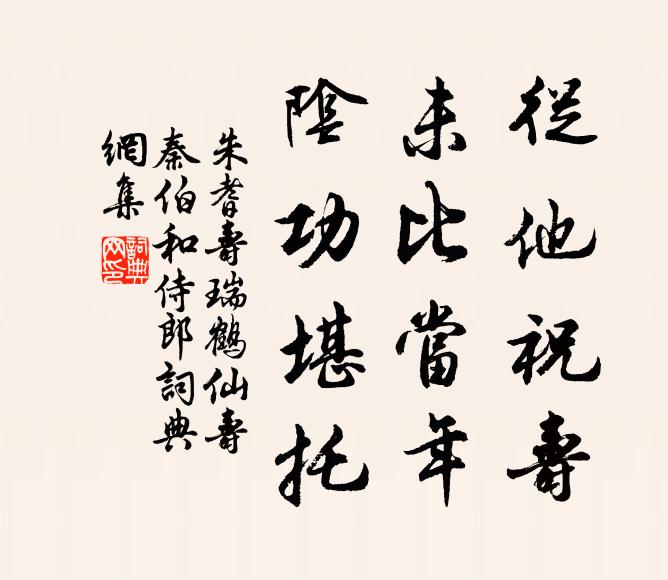 從他祝壽
未比當年
陰功堪托
朱耆壽瑞鶴仙壽
秦伯和侍郎詞典
網集
詞典
网印